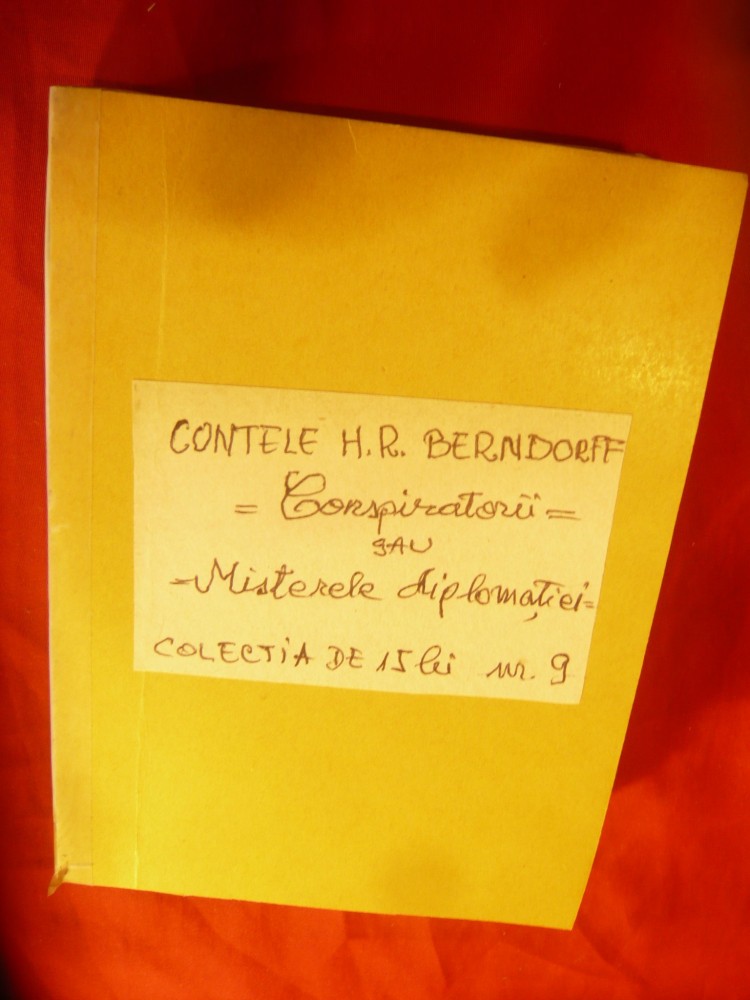 CONTELE H.R. BERNDORFF
= Conspiratorii =
SAU
= Misterele diplomației =
COLECTIA DE 15 lei nr. 9